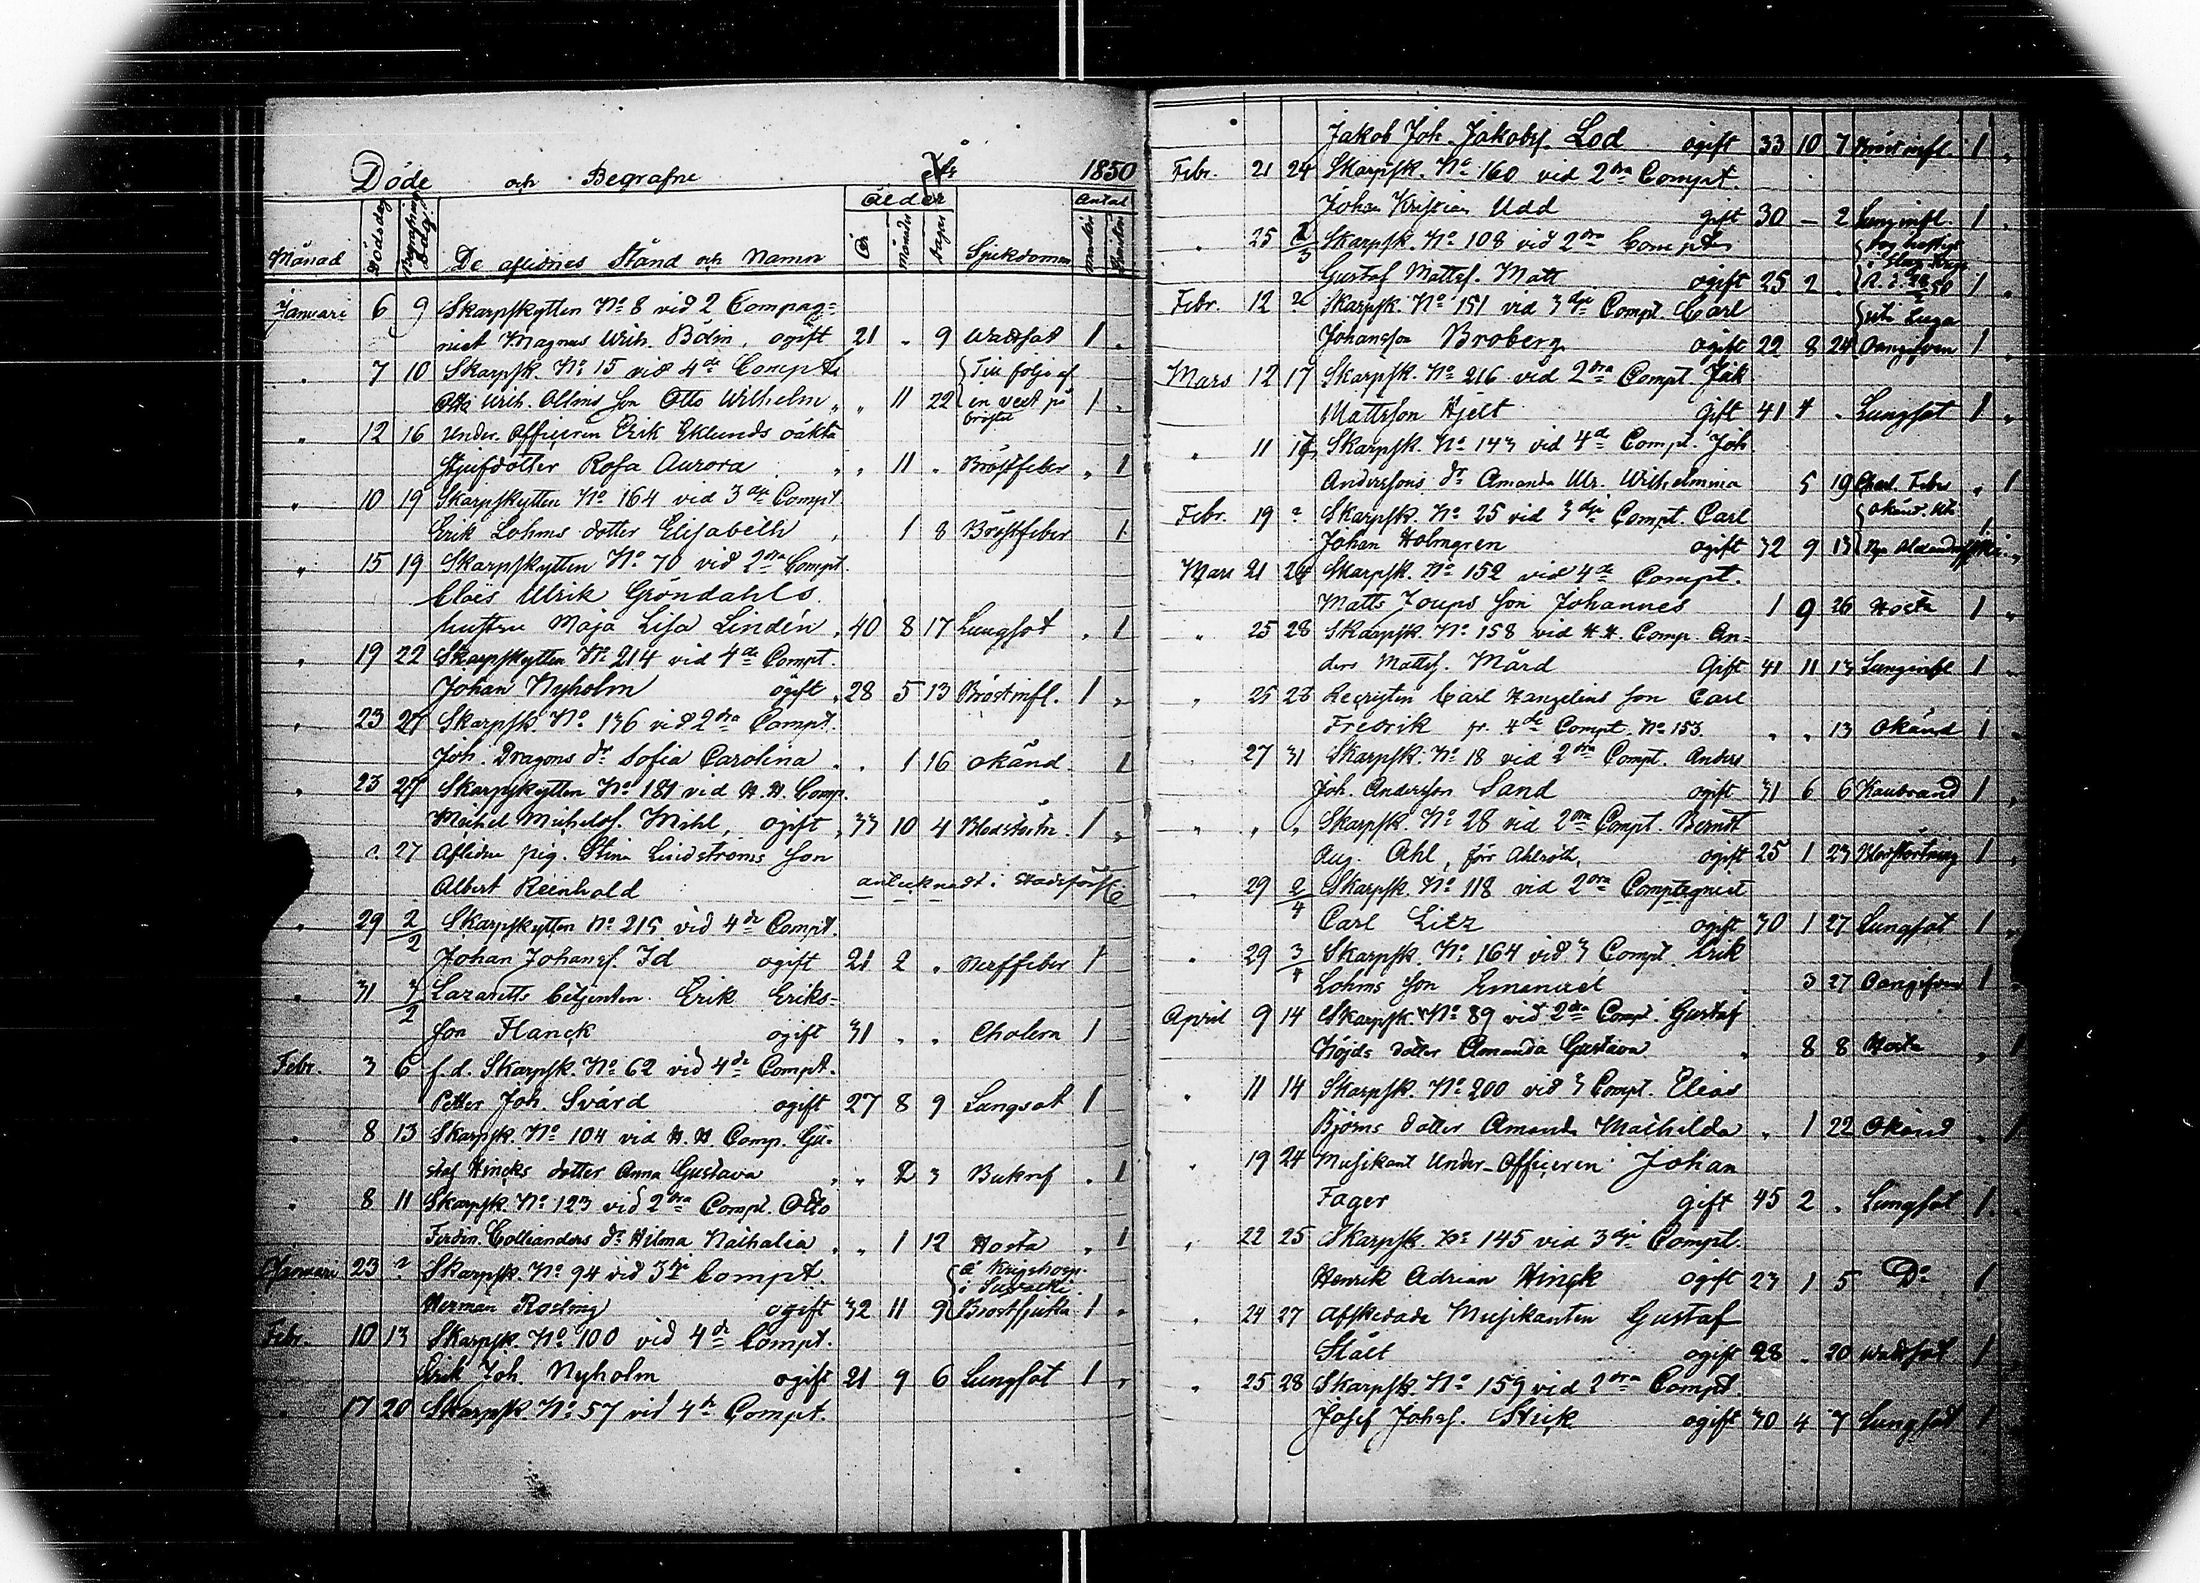 Döde och Begrafne År 1850
Månad Dödsdag Begrafnings dag De aflidnes Stånd och Namn Ålder År Månader Dagar Sjukdomar Antal Mankön Qvinkön
Januari 6 9 Skarpskytten No 8 vid 2 Compag=
niet Magnus Wilh. Bölm, ogift 21 " 9 Wattsot 1 "
" 7 10 Skarpsk. No 15 vid 4de Compts { Till följe af
Otto Wilh. Ollms Son Otto Wilhelm " " 11 22 en vext på 1 "
bröstet
" 12 16 Under. Officeren Erik Eklunds oäkta
Styfdotter Rosa Aurora " " 11 " Bröstfeber " 1
" 10 19 Skarpskytten No 164 vid 3dje Compt
Erik Lohms dotter Elisabeth " 1 8 Bröstfeber 1
" 15 19 Skarpskytten No 70 vid 2dra Compt.
Claës Ulrik Gröndahls
hustru Maja Lisa Lindén " 40 8 17 Lungsot " 1
" 19 22 Skarpskytten No 214 vid 4de Compt.
Johan Nyholm ogift " 28 5 13 Bröstinfl. 1 "
" 23 27 Skarpsk. No 136 vid 2dra Compt.
Joh. Dragons dr Sofia Carolina " " 1 16 okänd 1
" 23 27 Skarpskytten No 181 vid H. H. Comp.
Michel Michelsf. Mihl, ogift " 33 10 4 Blodstörtn. 1 "
" ? 27 Aflidne pig. Stina Lindströms Son
Albert Reinhold antecknadt i Stadsförs
" 29 2/2 Skarpskytten No 215 vid 4de Compt.
Johan Johansf. Id ogift 21 2 " Nerffeber 1
" 31 3/2 Lazaretts betjenten Erik Eriks=
Son Flanck ogift 31 " " Cholera 1
Febr. 3 6 f.d. Skarpsk. No 62 vid 4de Compt.
Petter Joh. Svärd ogift 27 8 9 Lungsot 1
" 8 13 Skarpsk. No 104 vid H. H Comp. Gu=
staf Hincks dotter Anna Gustava " " 2 3 Bukref " 1
" 8 11 Skarpsk. No 123 vid 2dra Compt. Otto
Ferdin. Collianders dr Hilma Nathalia " " 1 12 Hosta " 1
Januari 23 ? Skarpsk. No 94 vid 3dje Compt. { å Krigshosp.
i Suwalki.
Herman Rosling ogift 32 11 9 Bröstsjuka 1 "
Febr. 10 13 Skarpsk. No 100 vid 4de Compt.
Erik Joh. Nyholm ogift 21 9 6 Lungsot 1 "
" 17 20 Skarpsk. No 57 vid 4de Compt.
Jakob Joh. Jakobsf. Lod ogift 33 10 7 Bröstinfl. 1 "
Febr. 21 24 Skarpsk. No 160 vid 2dra Compt.
Johan Kristian Udd gift 30 – 2 Lunginfl. 1 "
" 25 2/3 Skarpsk. No 108 vid 2dra Compts
Gustaf Mattsf. Matt ogift 25 2 " 1 "
Febr. 12 ? Skarpsk. No 151 vid 3dje Compt. Carl
Johansson Broberg ogift 22 8 24 Oangifven 1 "
Mars 12 17 Skarpsk. No 216 vid 2dra Compt. Jak
Mattsson Hjelt Gift 41 4 " Lungsot 1 "
" 11 17 Skarpsk. No 143 vid 4de Compt. Joh
Anderssons dr Amanda Ulr. Wilhelmina 5 19 Feber " 1
Febr. 19 ? Skarpsk. No 25 vid 3dje Compt. Carl { Okänd.
Johan Holmgren ogift 32 9 13 Nya 1
Mars 21 24 Skarpsk. No 152 vid 4de Compt.
Matts Joups Son Johannes 1 9 26 Hosta 1 "
" 25 28 Skarpsk. No 158 vid H. H. Comp. An=
ders Mattsf. Mård Gift 41 11 13 Lunginfl. 1 "
" 25 28 Recryten Carl Hangelins Son Carl
Fredrik fr. 4de Compt. No 153 " " 13 Okänd 1 "
" 27 31 Skarpsk. No 18 vid 2dra Compt. Anders
Joh. Andersson Sand ogift 31 6 6 Kallbrand 1 "
" " " Skarpsk. No 28 vid 2dra Compt. Berndt
Aug. Ahl, förr Ahlroth, ogift 25 1 23 Blodstörtning 1 "
" 29 2/4 Skarpsk. No 118 vid 2dra Comptagniet
Carl Litz ogift 30 1 27 Lungsot 1 "
" 29 3/4 Skarpsk. No 164 vid 3 Compt. Erik
Lohms Son Emanuel 3 27 Oangifven 1 "
April 9 14 Skarpsk. No 89 vid 2dra Compt. Gustaf
Höjds dotter Amanda Gustava " 8 8 Hosta " 1
" 11 14 Skarpsk. No 200 vid 3 Compt. Elias
Björns dotter Amanda Mathilda " 1 22 Okänd " 1
" 19 24 Musikant Under-Officeren Johan
Fager gift 45 2 " Lungsot 1 "
" 22 25 Skarpsk. No 145 vid 3dje Compt.
Henrik Adrian Hinck ogift 23 1 5 Do 1
" 24 27 Afskedade Musikanten Gustaf
Stålt ogift 28 " 20 Wattsot 1
" 25 28 Skarpsk. No 159 vid 2dra Compt.
Josef Johsf. Stick ogift 30 4 7 Lungsot 1